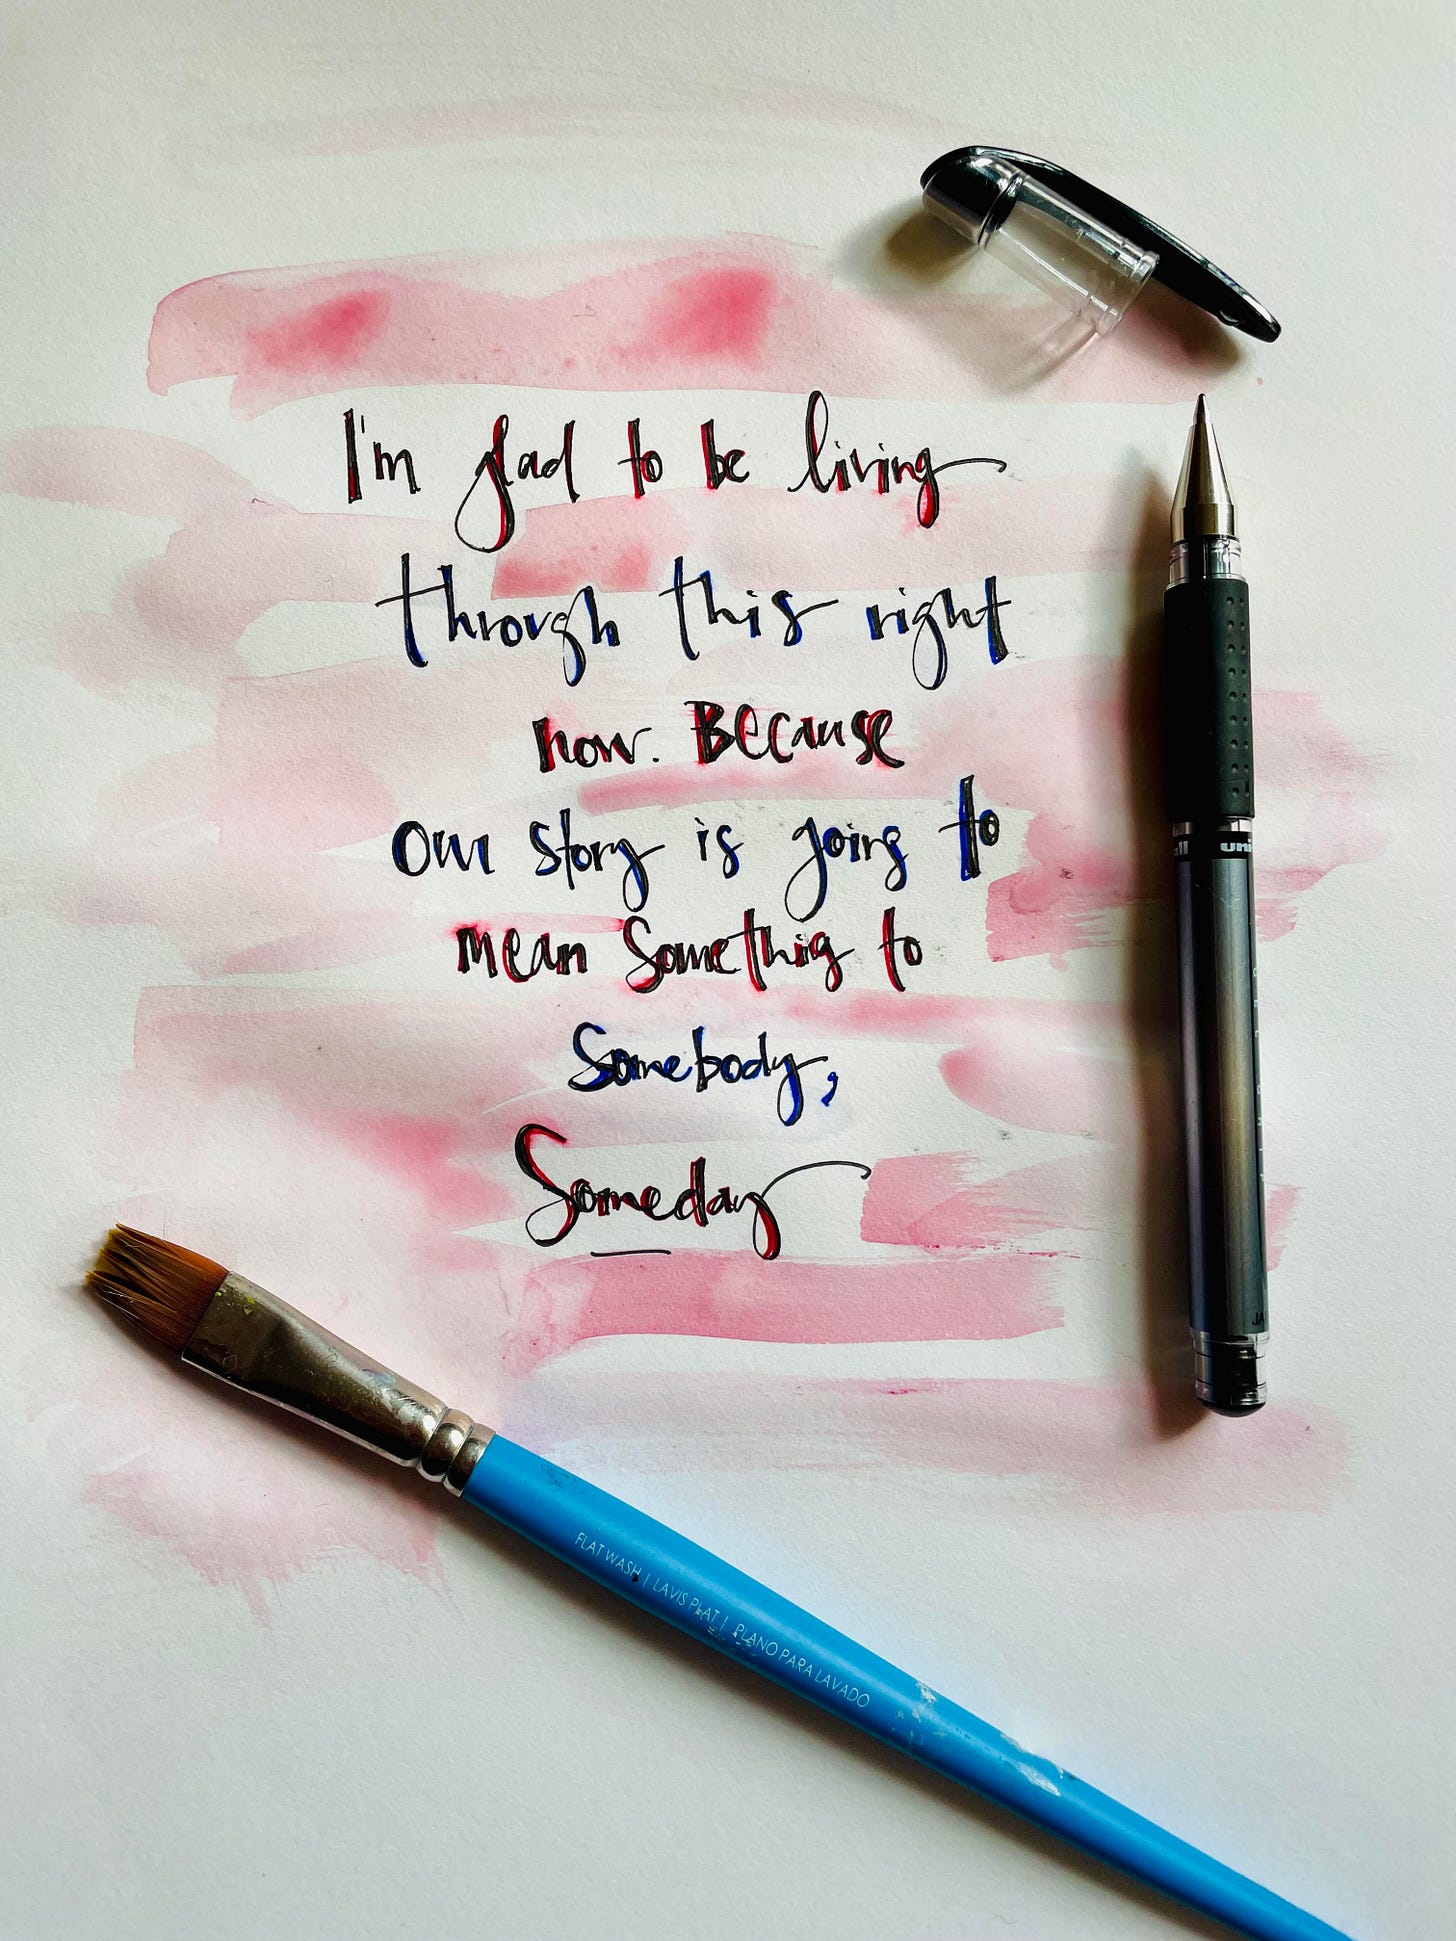 I'm glad to be living
through this right
now. Because
Our story is going to
mean Something to
Somebody,
Someday
uni
FLAT WASH | LAVIS PLAT | PLANO PARA LAVADO